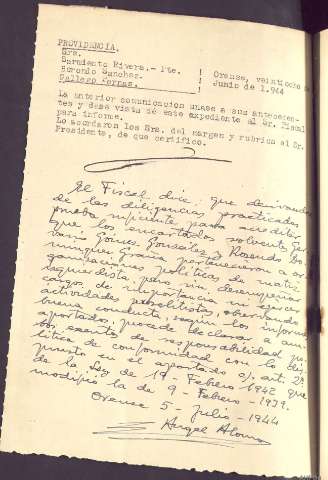 PROVIDENCIA.
Sres.
Sarmiento Rivera.- Pte.
Hermida Sanchez.
Gallego Porras.
Orense, veintiocho
Junio de 1.944
La anterior comunicación unase a sus anteceden-
tes y dese vista de este expediente al Sr. Fiscal
para informe.
Lo acordaron los Sres. del margen y rubrica el Sr.
Presidente, de que certifico.
El Fiscal dice: que derivandose
de las diligencias practicadas
prueba suficiente para acreditar
que los encartados solventes
Gómez González y Rosendo
García pertenecieron a or-
ganizaciones políticas de matiz
izquierdista pero sin desempeñar
cargos de importancia ni ejercer
actividades proselitistas, observando
buena conducta, según los informes
aportados, procede declarar a am-
bos exentos de responsabilidad po-
lítica de conformidad con lo dis-
puesto en el apartado art. 2º
de la Ley de 19 Febrero 1942 que
modificó la de 9 - Febrero - 1939.
Orense 5 - Julio - 1944
Angel Alonso